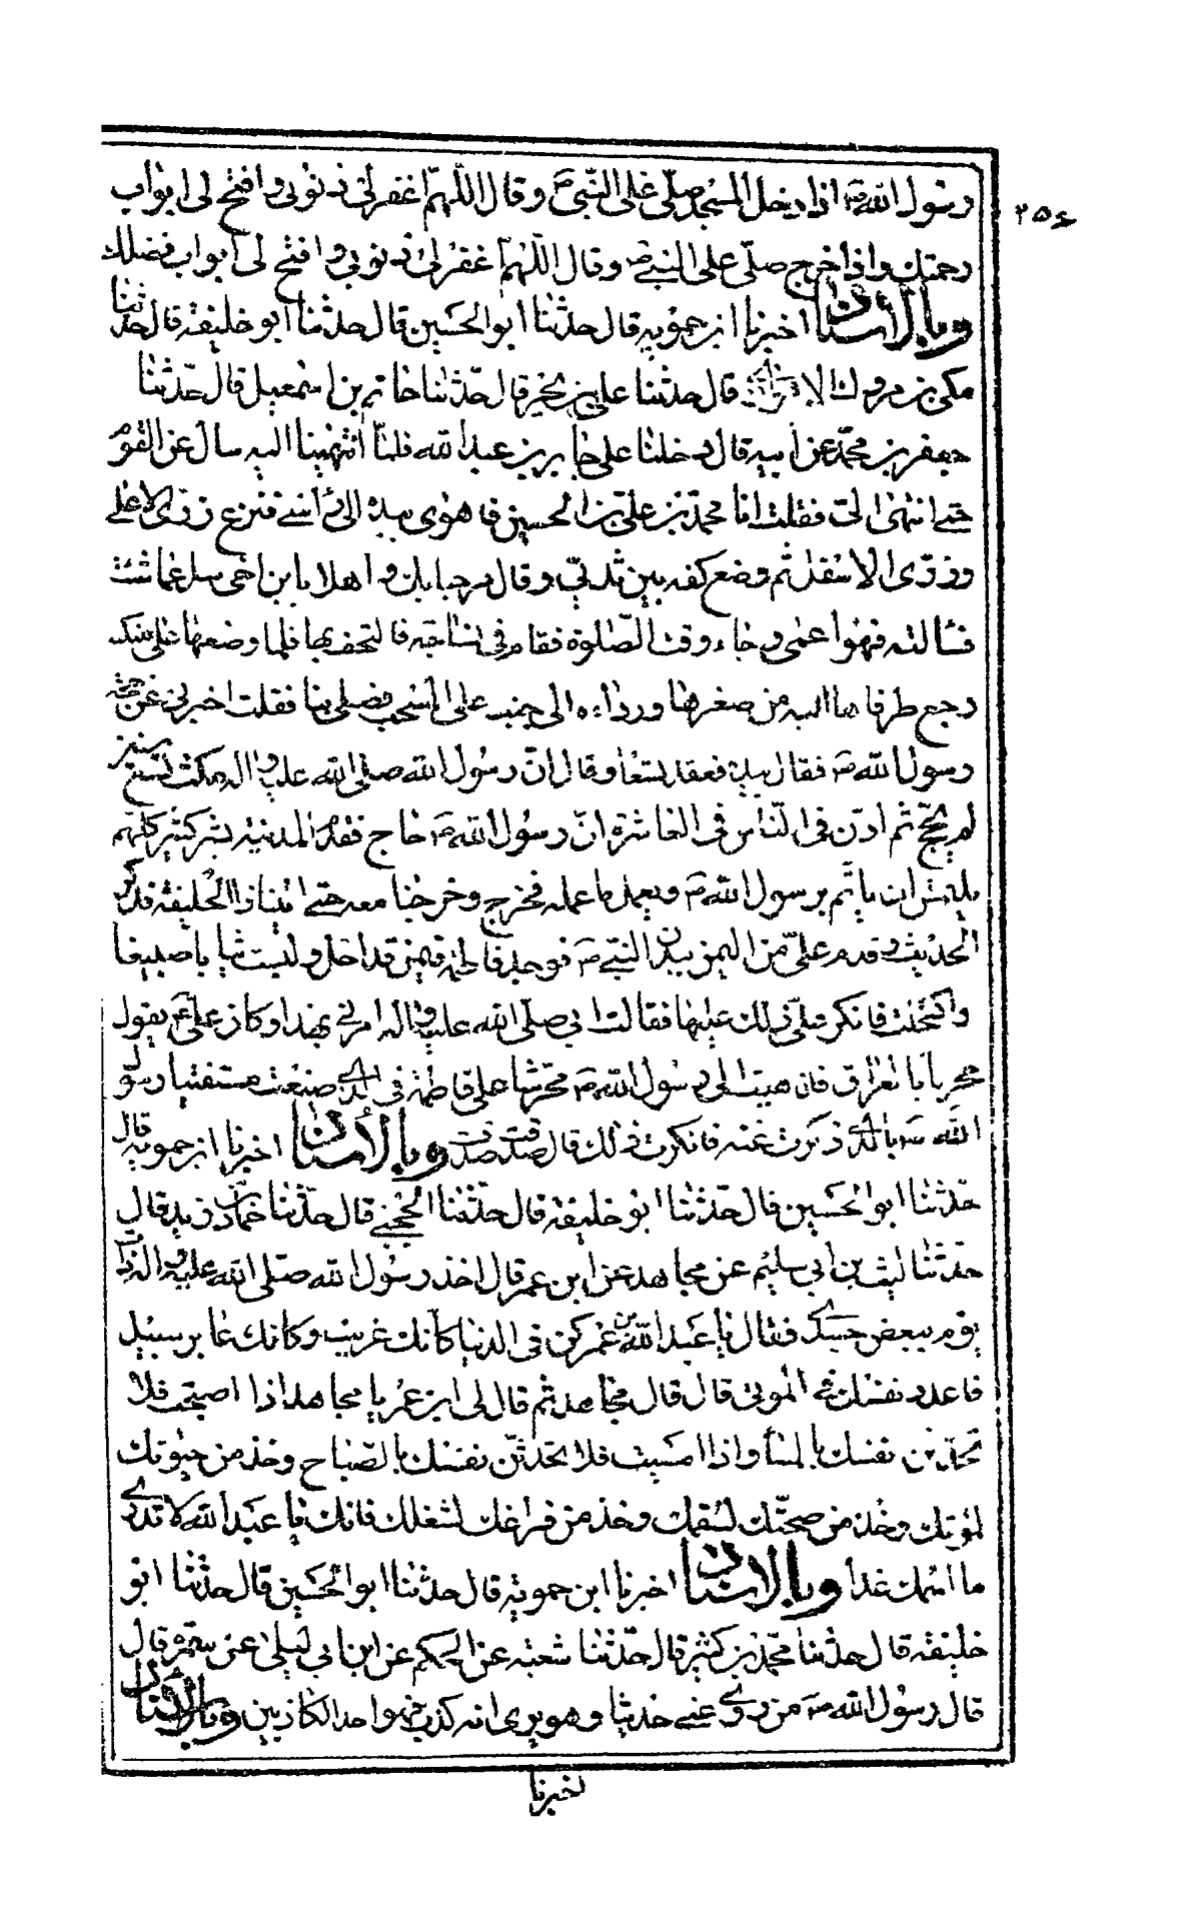 رسول الله ص اذا دخل المسجد صلّى على النّبى ص وقال اللّهمّ اغفر لى ذنوبى وافتح لى ابواب
۲۵۶
رحمتك واذا خرج صلّى على النبى ص وقال اللّهمّ اغفر لى ذنوبى وافتح لى ابواب فضلك
وبالاسناد اخبرنا ابن حمويه قال حدثنا ابو الحسين قال حدثنا ابو خليفة قال حدثنا
مكى بن مروك الا قال حدثنا على بن بحر قال حدّثنا حاتم بن اسمعيل قال حدّثنا
جعفر بن محمّد عن ابيه قال دخلنا على جابر بن عبد الله فلمّا انتهينا اليه سال عن القوم
حتى انتهى الىّ فقلت انا محمد بن على بن الحسين فاهوى بيده الى راسى فنزع زرّى الاعلى
وزرّى الاسفل ثم وضع كفه بين ثديّى وقال مرحبا بك واهلا يا بن اخى سل عما شئت
فسالته فهو اعمى وجاء وقت الصّلوة فقام فى نساجة فالتحف بها فلما وضعها على منكبه
رجع طرفاها اليه من صغرها ورداءه الى جنبه على المشجب فصلى بنا فقلت اخبرنى عن حجة
رسول الله ص فقال بيده فعقد تسعا وقال انّ رسول الله صلى الله عليه واله مكث تسع سنين
لم يحجّ ثم اذن فى النّاس فى العاشرة انّ رسول الله ص حاج فقدم المدنية بشر كثير كلّهم
يلتمس ان ياتم برسول الله ص ويعمل ما عمله فخرج وخرجنا معه حتى اتينا ذا الحليفة فذكر
الحديث وقدم علىّ من اليمن ببدن النبى ص فوجد فاطمة فيمن قد احل ولبست ثيابا صبيغا
واكتحلت فانكر علىّ ذلك عليها فقالت ابى صلّى الله عليه واله امرنى بهذا وكان على ع يقول
بالعراق فذهبت الى رسول الله ص محرشا على فاطمة فى الذى صنعت مستفتيا رسول
الله ص بالذى ذكرت عنه فانكرت ذلك قال صدقت صدقت وبالاسناد اخبرنا ابن حمويه قال
حدّثنا ابو الحسين قال حدّثنا ابو خليفة قال حدّثنا الحجبى قال حدّثنا حماد بن زيد قال
حدّثنا ليث بن ابى سليم عن مجاهد عن ابن عمر قال اخذ رسول الله صلّى الله عليه واله ذات
يوم ببعض جسدى فقال يا عبد الله بن عمر كن فى الدنيا كانك غريب وكانك عابر سبيل
فاعدد نفسك فى الموتى قال قال مجاهد ثم قال لى ابن عمر يا مجاهد اذا اصبحت فلا
تحدّثن نفسك بالمسأ واذا امسيت فلا تحدّثنّ نفسك بالصباح وخذ من حيوتك
لموتك وخذ من صحّتك لسقمك وخذ من فراغك لشغلك فانك يا عبد الله لا تدرى
ما اسمك غدا وبالاسناد اخبرنا ابن حمويه قال حدثنا ابو الحسين قال حدثنا ابو
خليفة قال حدثنا محمّد بن كثير قال حدّثنا شعبة عن الحكم عن ابن ابى ليلى عن سمرة قال
قال رسول الله ص من روى عنى حديثا وهو يرى انه كذب فهو احد الكاذبين وبالاسناد
اخبرنا